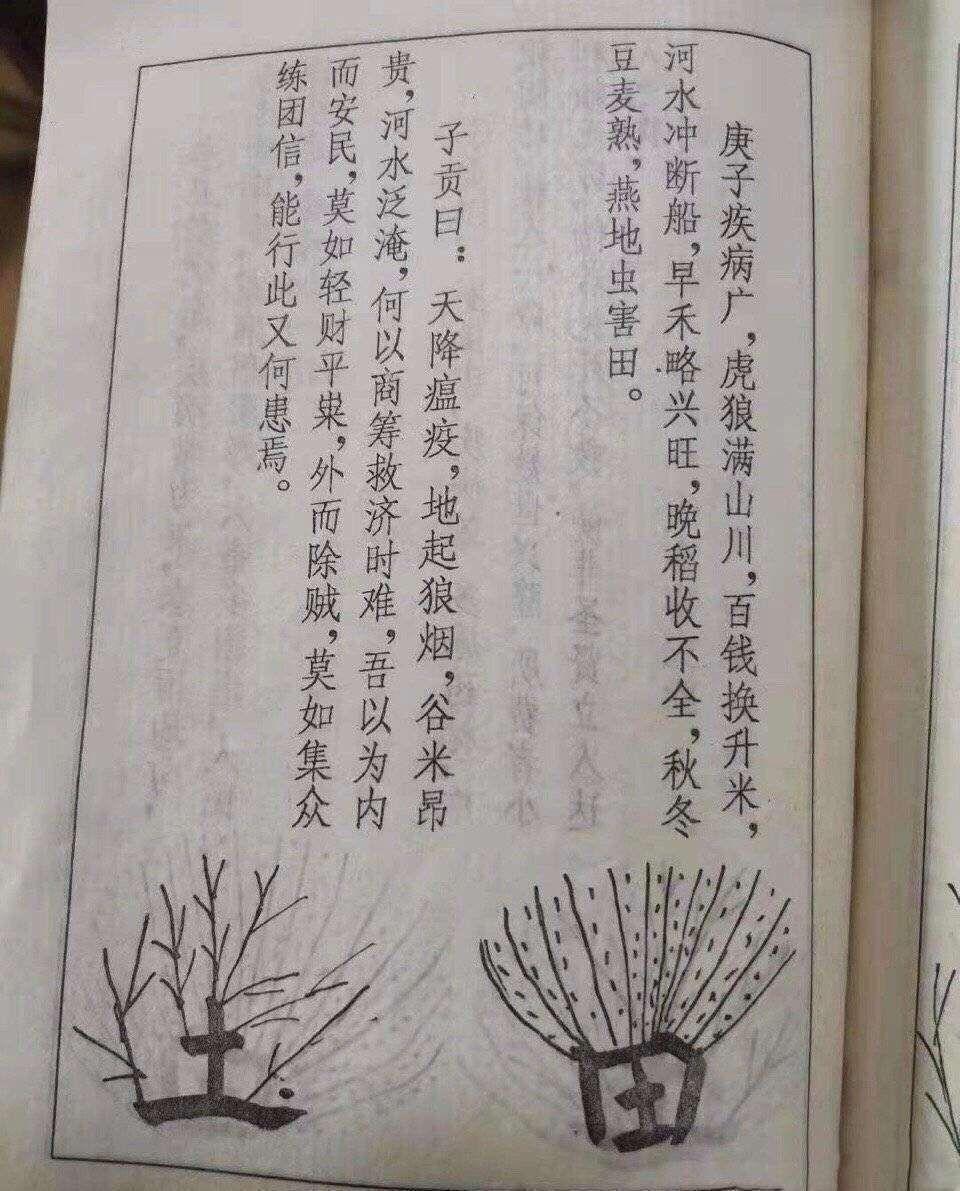 庚子疾病广，虎狼满山川，百钱换升米，
河水冲断船，早禾略兴旺，晚稻收不全，秋冬
豆麦熟，燕地虫害田。
子贡曰：天降瘟疫，地起狼烟，谷米昂
贵，河水泛淹，何以商筹救济时难，吾以为内
而安民，莫如轻财平粜，外而除贼，莫如集众
练团信，能行此又何患焉。
土
田